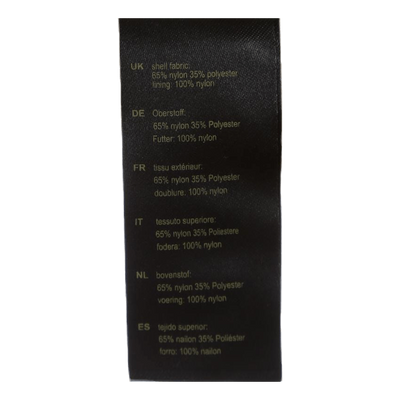 UK shell fabric:
65% nylon 35% polyester
lining: 100% nylon
DE Oberstoff:
65% nylon 35% Polyester
Futter: 100% nylon
FR tissu extérieur:
65% nylon 35% Polyester
doublure. 100% nylon
IT tessuto superiore:
65% nylon 35% Poliestere
fodera: 100% nylon
NL bovenstof:
65% nylon 35% Polyester
voering: 100% nylon
ES tejido superior:
65% nailon 35% Poliéster
forro: 100% nailon